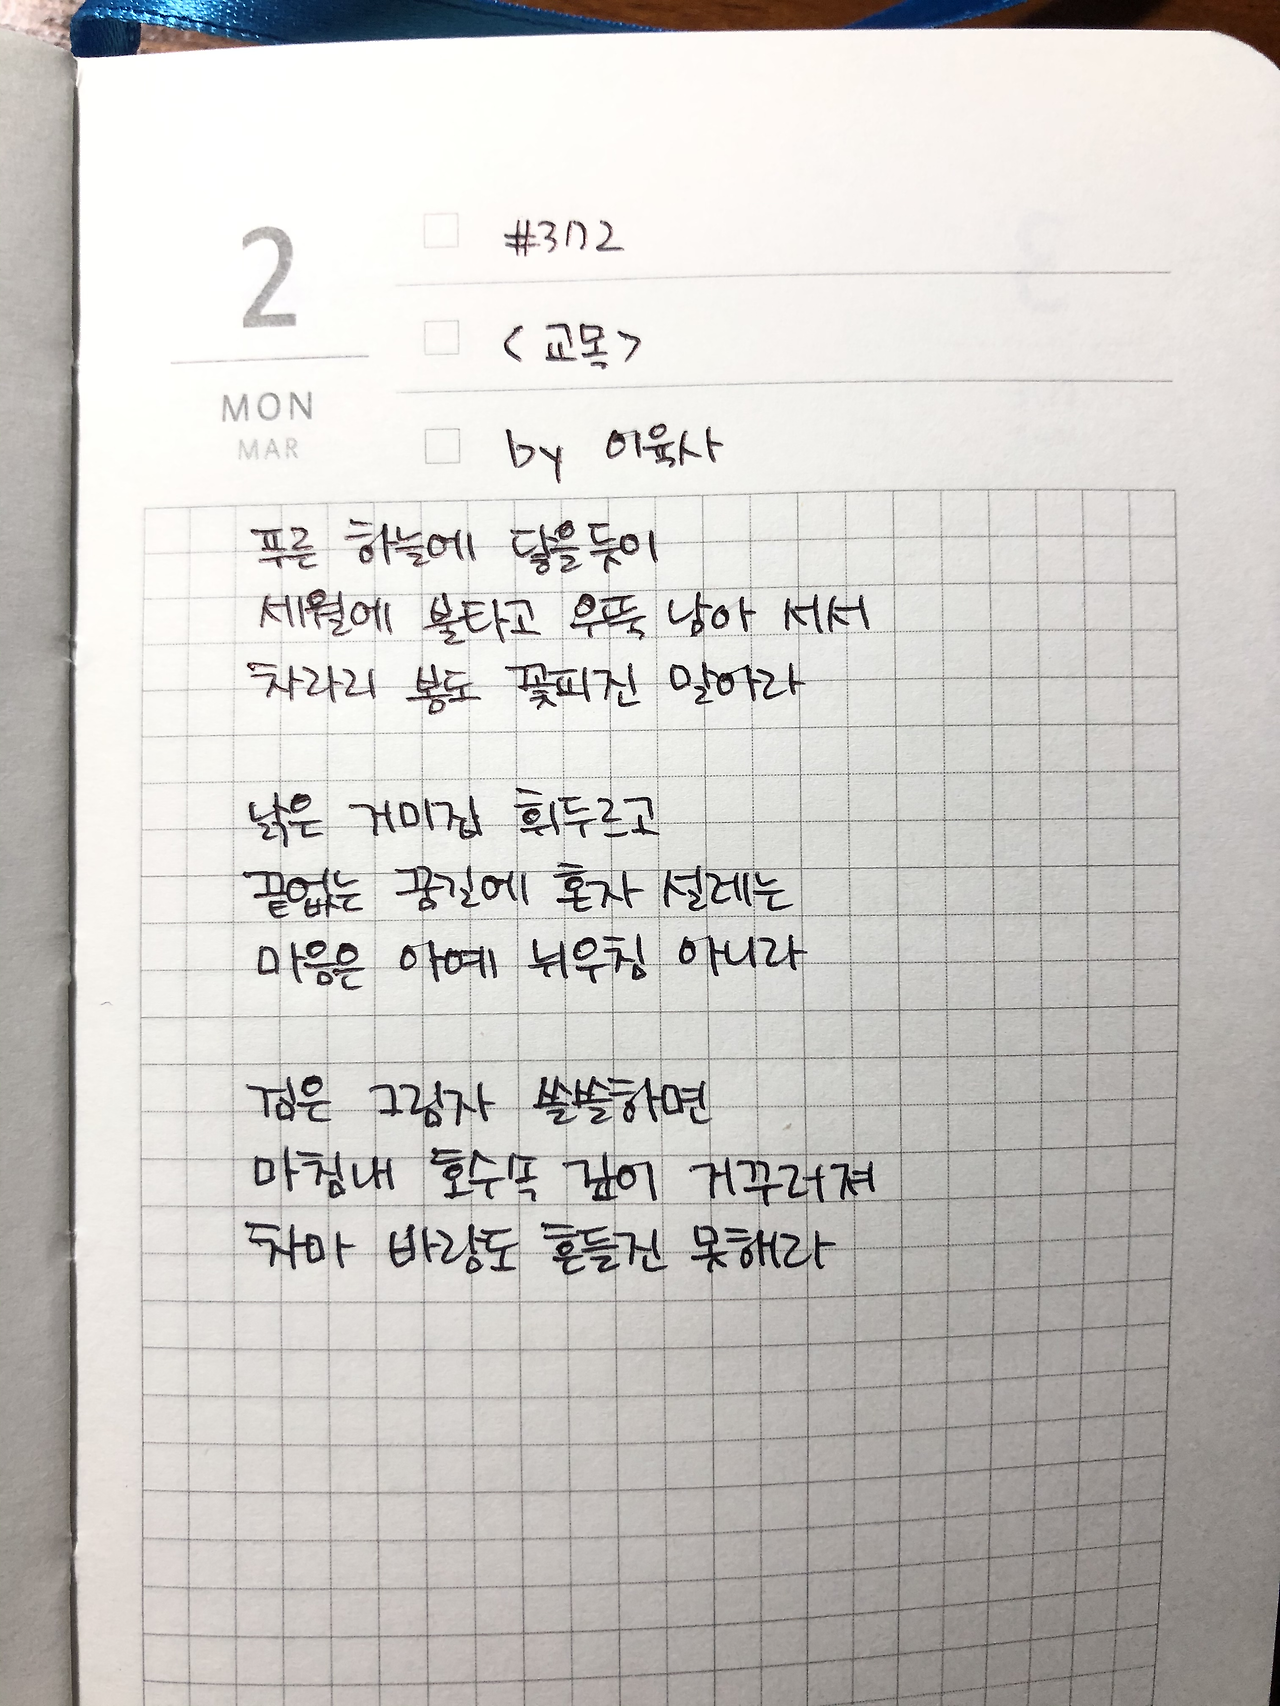 2
MON
MAR
#372
<교목>
by 이육사
푸른 하늘에 닿을듯이
세월에 불타고 우뚝 남아 서서
차라리 봄도 꽃피진 말아라
낡은 거미집 휘두르고
끝없는 꿈길에 혼자 설레는
마음은 아예 뉘우침 아니라
검은 그림자 쓸쓸하면
마침내 호수속 깊이 거꾸러져
차마 바람도 흔들진 못해라